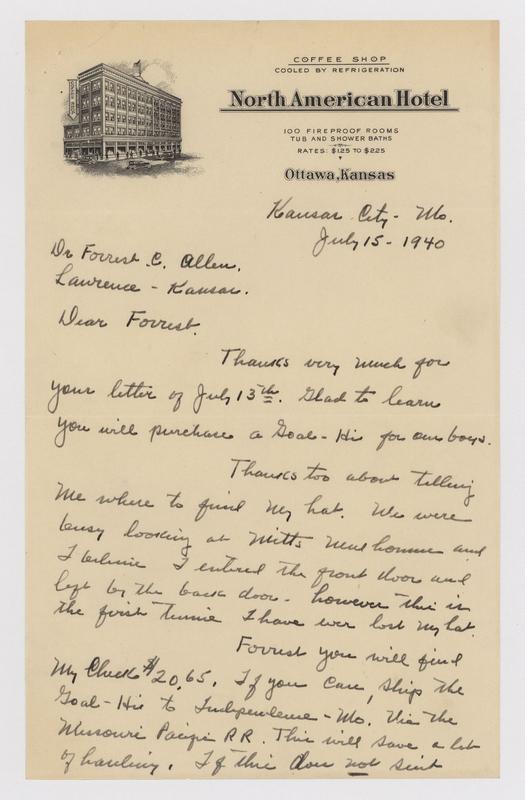 COFFEE SHOP
COOLED BY REFRIGERATION
North American Hotel
100 FIREPROOF ROOMS
TUB AND SHOWER BATHS
RATES: $1.25 TO $2.25
Ottawa, Kansas
Kansas City - Mo.
July 15 - 1940
Dr Forrest C. Allen.
Lawrence - Kansas.
Dear Forrest.
Thanks very much for
your letter of July 13th. Glad to learn
you will purchase a Goal-Hi for our boys.
Thanks too about telling
me where to find my hat. We were
busy looking at Mitts new homme and
I beleive I entered the front door and
left by the back door - however this is
the first timme I have ever lost my hat.
Forrest you will find
My Check $20.65. If you can, ship the
Goal-Hi to Independence - Mo. Via the
Missouri Pacific RR. This will save a lot
of hauling. If this does not suit